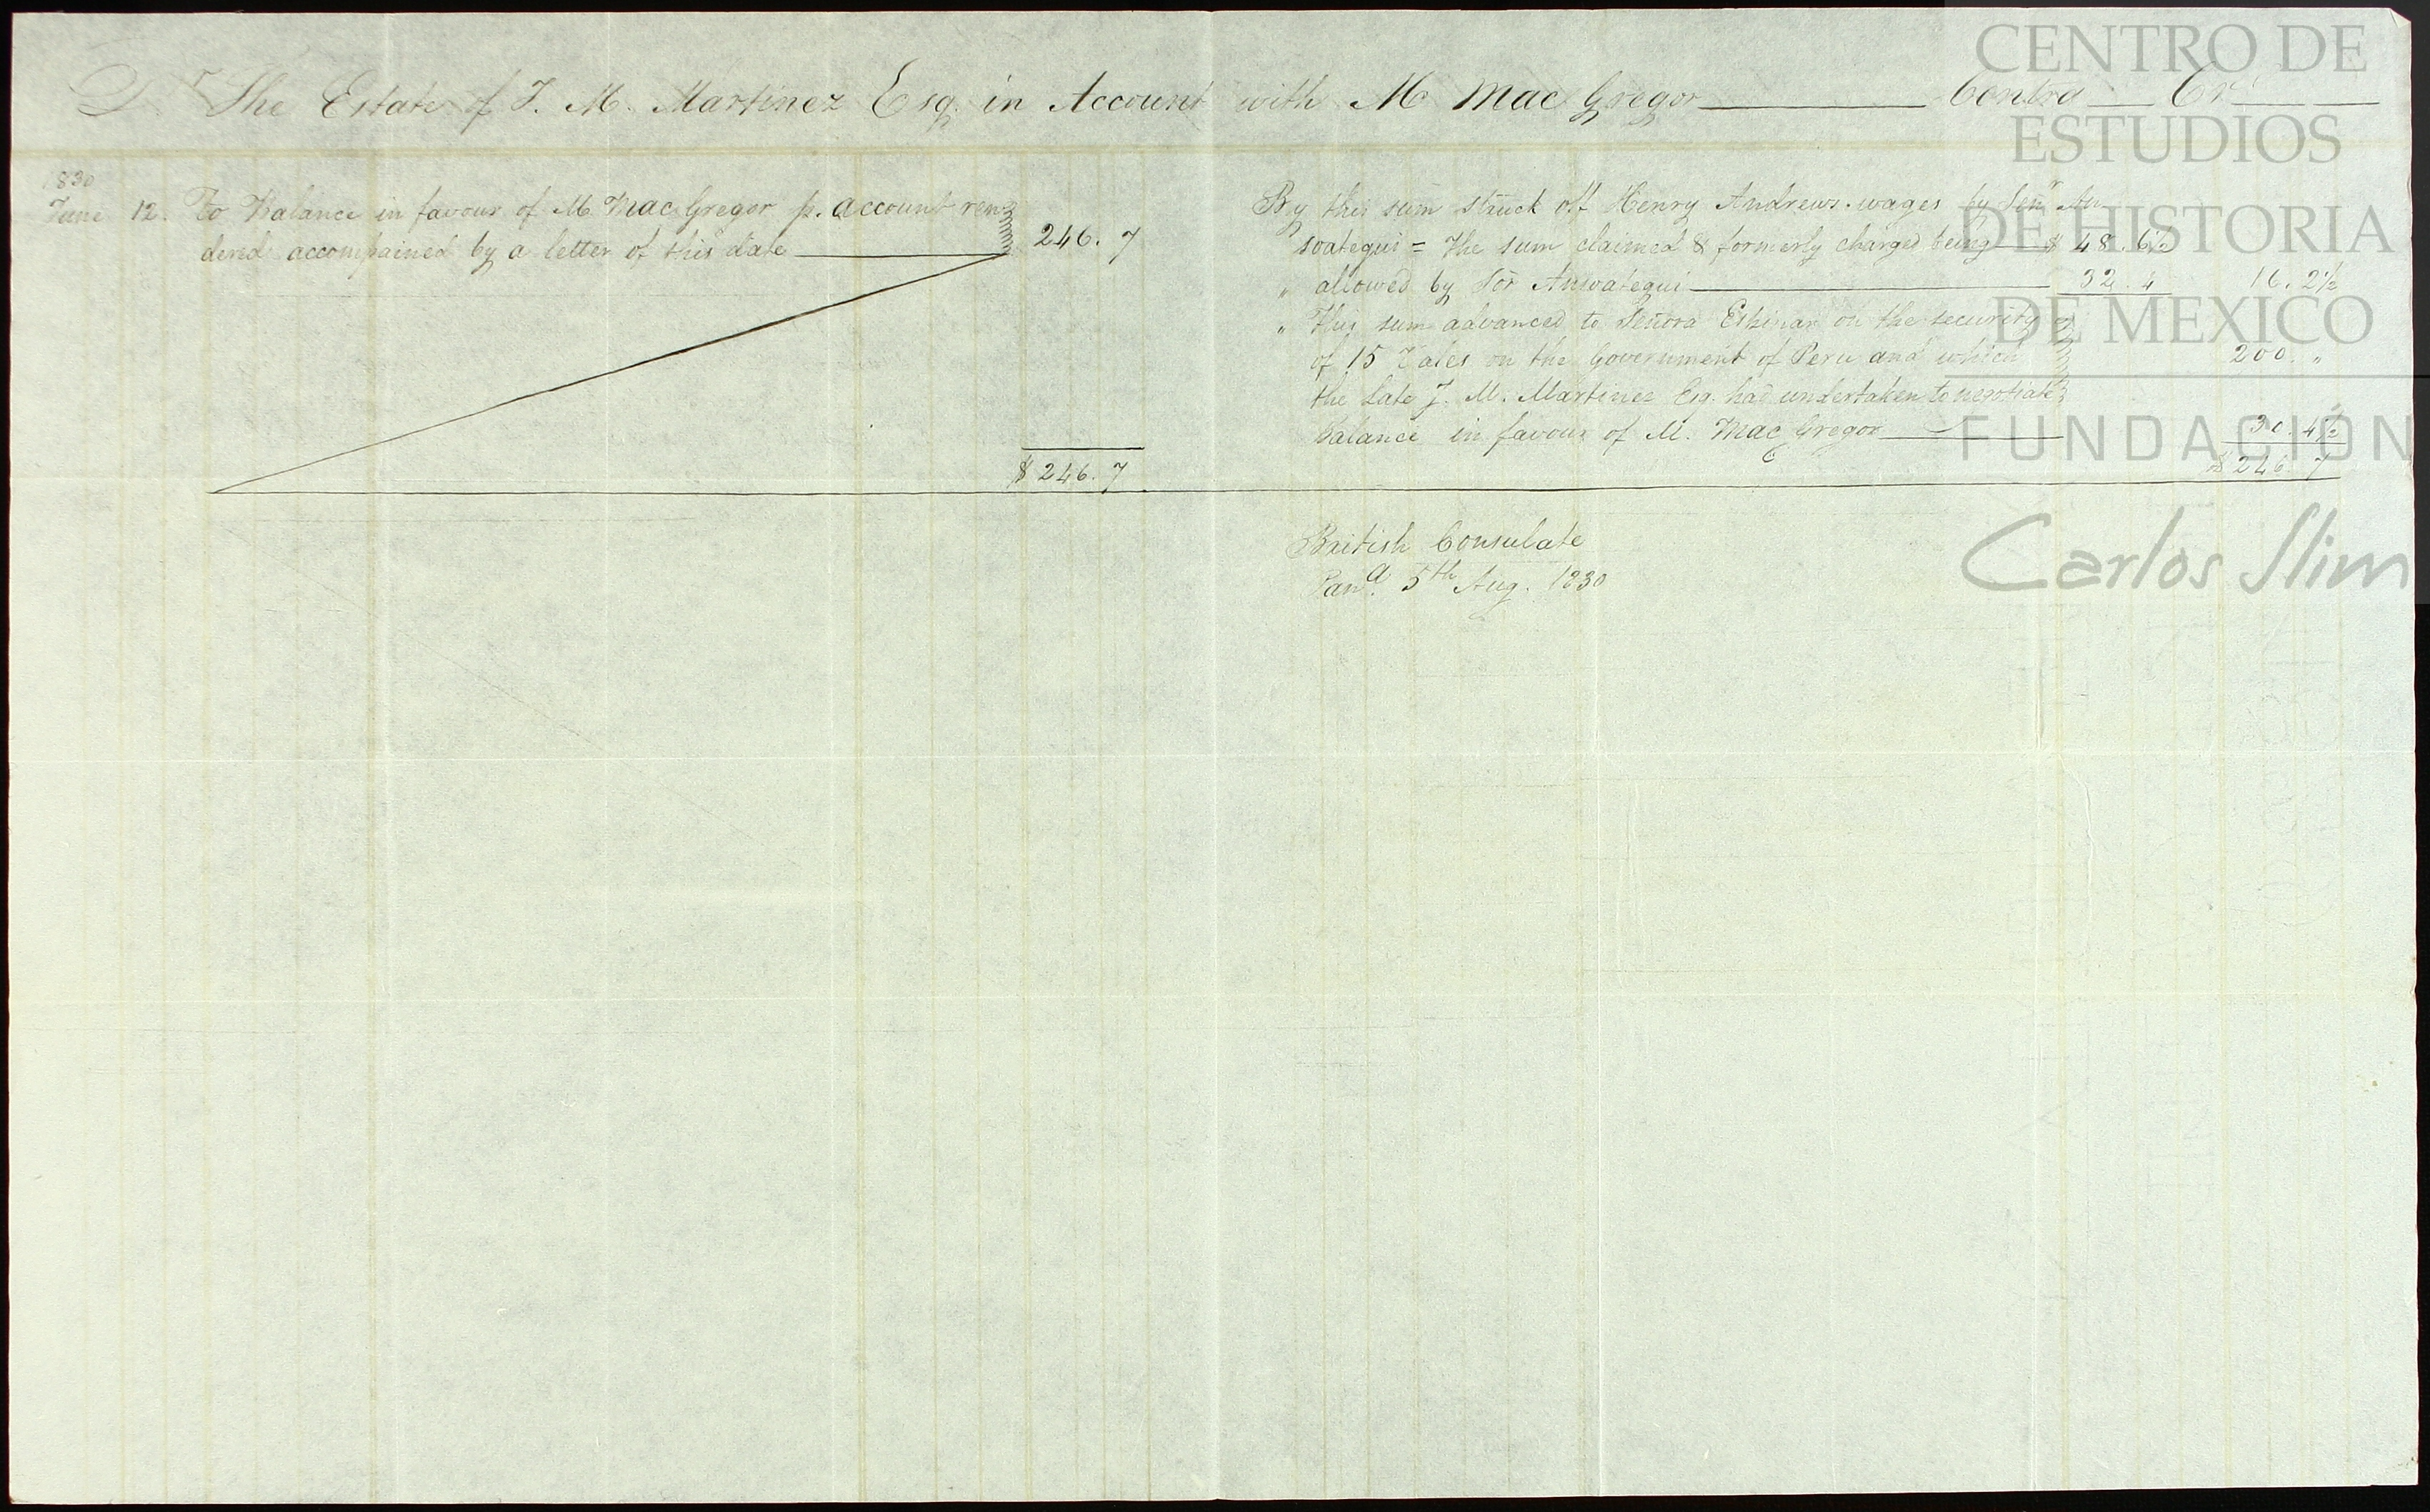 Dr The Estate of J. M. Martinez Esq. in Account with M Mac Gregor Contra Cr
1830
June 12. To Balance in favour of M Mac Gregor p. account ren-
dered accompained by a letter of this date 246. 7
$ 246. 7
By this sum struck off Henry Andrews wages by Senr An-
soategui = The sum claimed & formerly charged being $ 48. 6½
„ allowed by Sor Ansoategui 32. 4 16. 2½
„ This sum advanced to Señora Espinar on the security
of 15 Vales on the Government of Peru and which 200. „
the late J. M. Martinez Esq. had undertaken to negotiate
Balance in favour of M. Mac Gregor 30. 4½
$ 246. 7
British Consulate
Pana. 5th Aug. 1830
CENTRO DE
ESTUDIOS
DE HISTORIA
DE MEXICO
FUNDACIÓN
Carlos Slim